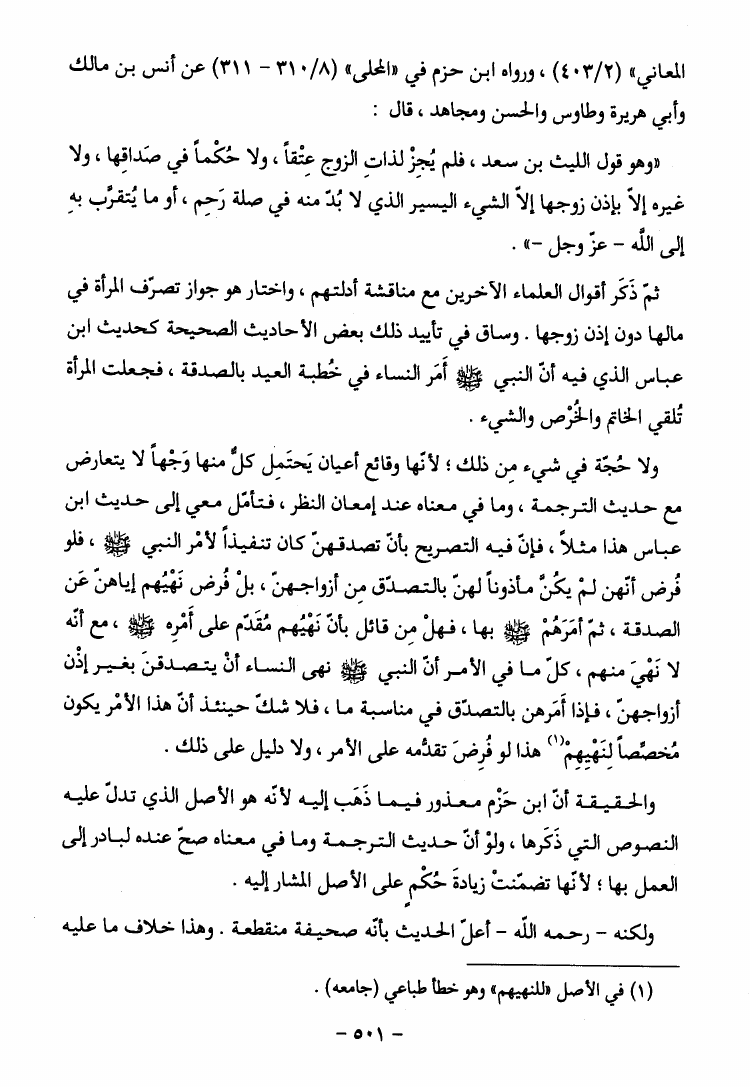 المعاني» (٤٠٣/٢) ، ورواه ابن حزم في «المحلى» (٣١٠/٨ – ٣١١) عن أنس بن مالك
وأبي هريرة وطاوس والحسن ومجاهد ، قال :
«وهو قول الليث بن سعد ، فلم يُجِزْ لذاتِ الزوج عِتْقاً ، ولا حُكْماً في صَداقِها ، ولا
غيره إلاّ بإذن زوجها إلاّ الشيء اليسير الذي لا بُدّ منه في صلة رَحِم ، أو ما يُتقرَّب بهِ
إلى اللَّه – عزّ وجل –» .
ثمّ ذَكَر أقوال العلماء الآخرين مع مناقشة أدلتهم ، واختار هو جواز تصرّف المرأة في
مالها دون إذن زوجها . وساق في تأييد ذلك بعض الأحاديث الصحيحة كحديث ابن
عباس الذي فيه أنّ النبي ﷺ أَمَر النساء في خُطبة العيد بالصدقة ، فجعلت المرأة
تُلقي الخاتم والخُرْص والشيء .
ولا حُجّة في شيء مِن ذلك ؛ لأنّها وقائع أعيان يَحتَمِل كلُّ منها وَجْهاً لا يتعارض
مع حديث الترجمة ، وما في معناه عند إمعان النظر ، فتأمّل معي إلى حديث ابن
عباس هذا مثلاً ، فإنّ فيه التصريح بأنّ تصدقهنّ كان تنفيذاً لأمْر النبي ﷺ ، فلو
فُرض أنّهن لمْ يكُنَّ مأذوناً لهنّ بالتصدّق مِن أزواجهنّ ، بلْ فُرض نَهْيُهم إياهنّ عَن
الصدقة ، ثمّ أمَرَهُمْ ﷺ بها ، فهلْ مِن قائل بأنّ نَهْيُهم مُقَدّم على أَمْرِه ﷺ ، مع أنّه
لا نَهْيَ منهم ، كلّ ما في الأمر أنّ النبي ﷺ نهى النساء أنْ يتصدقنَ بغير إذْن
أزواجهنّ ، فإذا أمَرَهن بالتصدّق في مناسبة ما ، فلا شكّ حينئذ أنّ هذا الأمْر يكون
مُخصِّصاً لِنَهْيِهِمْ(١) هذا لو فُرِضَ تقدُّمه على الأمر ، ولا دليل على ذلك .
والحقيقة أنّ ابن حَزْم معذور فيما ذَهَب إليه لأنّه هو الأصل الذي تدلّ عليه
النصوص التي ذَكَرها ، ولوْ أنّ حديث الترجمة وما في معناه صحّ عنده لبادر إلى
العمل بها ؛ لأنّها تضمّنتْ زيادةَ حُكْمٍ على الأصل المشار إليه .
ولكنه – رحمه اللّه – أعلّ الحديث بأنّه صحيفة منقطعة . وهذا خلاف ما عليه
(١) في الأصل «للنهيهم» وهو خطأ طباعي (جامعه) .
– ٥٠١ –